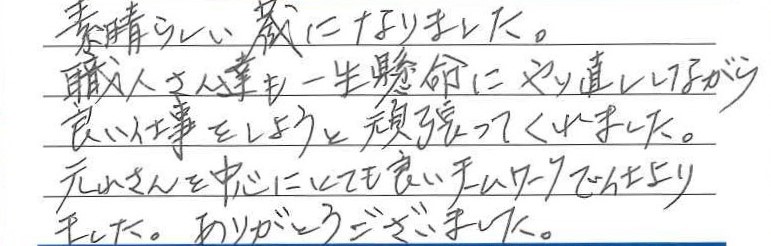 素晴らしい蔵になりました。
職人さん達も一生懸命にやり直ししながら
良い仕事をしようと頑張ってくれました。
元山さんを中心にとても良いチームワークで仕上り
ました。ありがとうございました。